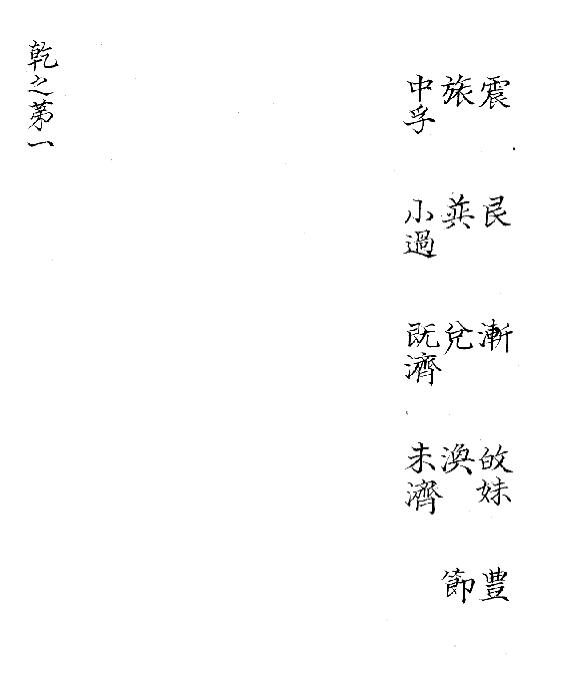 震 艮 漸 皈妹 豊
旅 巽 兌 渙 節
中孚 小過 既濟 未濟
乾之第一